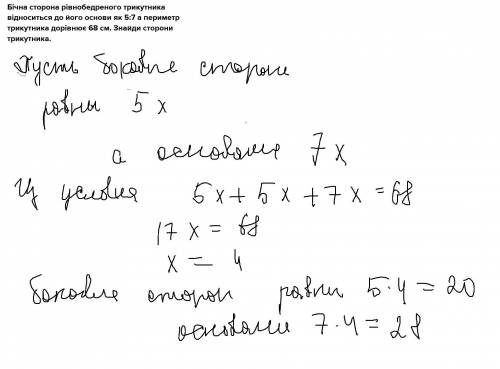 Бічна сторона рівнобедреного трикутника
відноситься до його основи як 5:7 а периметр
трикутника дорівнює 68 см. Знайди сторони
трикутника.
Пусть боковые стороны
равны 5x
а основание 7x
Из условия 5x + 5x + 7x = 68
17x = 68
x = 4
боковые сторон равны 5·4 = 20
основани 7·4 = 28